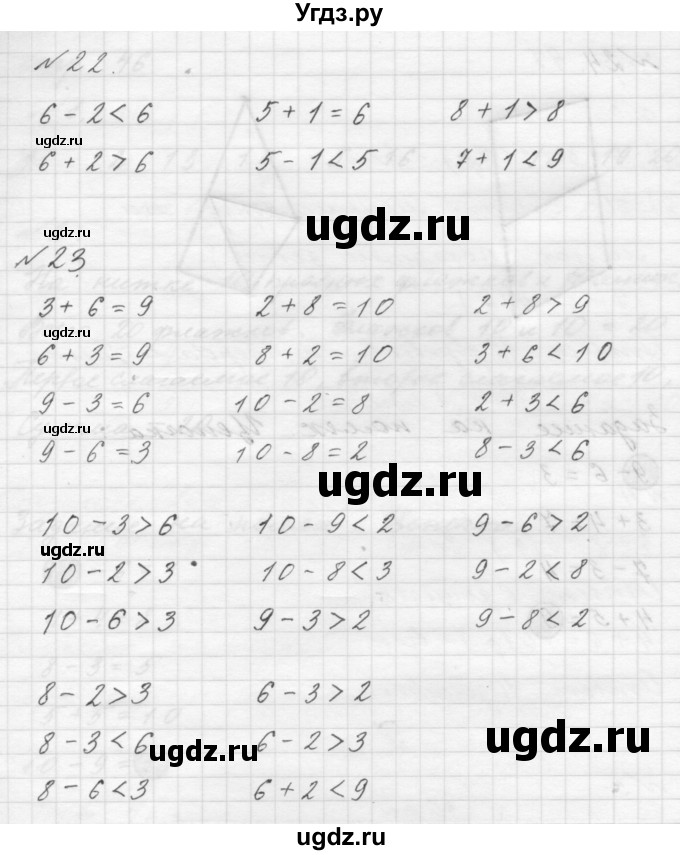 Угдз.ру
№ 22.
6 - 2 < 6 5 + 1 = 6 8 + 1 > 8
ugdz.ru
6 + 2 > 6 5 - 1 < 5 7 + 1 < 9
ugdz.ru
ugdz.ru
№ 23
3 + 6 = 9 2 + 8 = 10 2 + 8 > 9
ugdz.ru
6 + 3 = 9 8 + 2 = 10 3 + 6 < 10
9 - 3 = 6 10 - 2 = 8 2 + 3 < 6
ugdz.ru
9 - 6 = 3 10 - 8 = 2 8 - 3 < 6
ugdz.ru
10 - 3 > 6 10 - 9 < 2 9 - 6 > 2
ugdz.ru
10 - 2 > 3 10 - 8 < 3 9 - 2 < 8
10 - 6 > 3 9 - 3 > 2 9 - 8 < 2
8 - 2 > 3 6 - 3 > 2
8 - 3 < 6 6 - 2 > 3
ugdz.ru
ugdz.ru
8 - 6 < 3 6 + 2 < 9
ugdz.ru